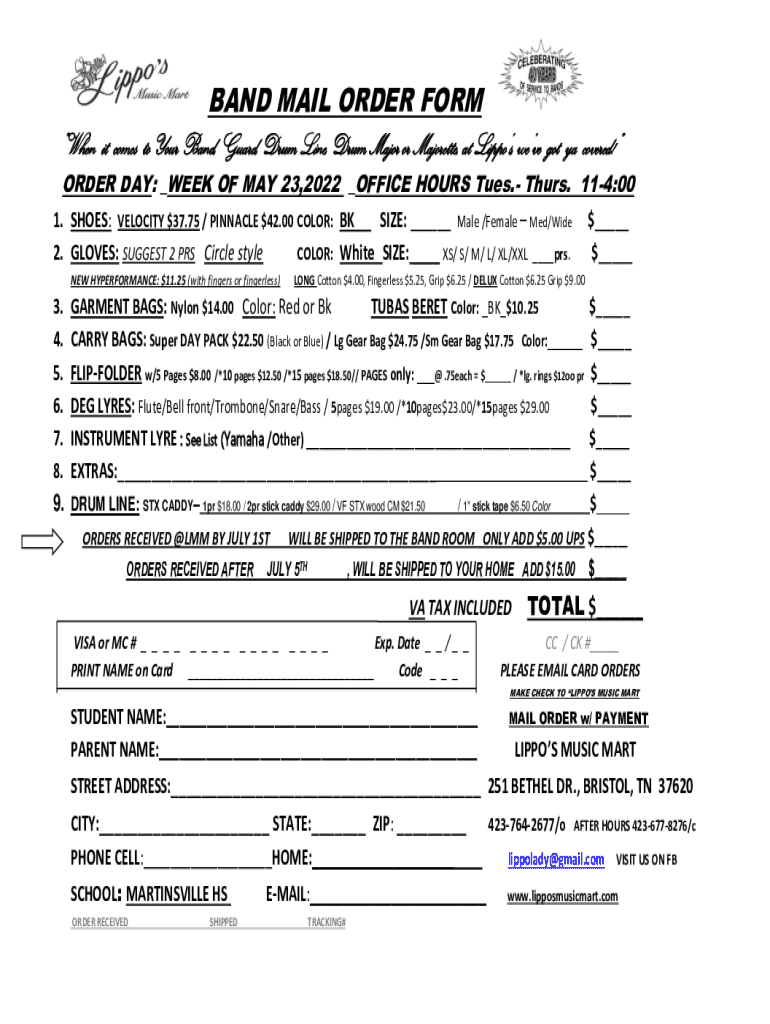 Lippo's
Music Mart
CELEBERATING
40 YEARS
OF SERVICE TO BANDS
BAND MAIL ORDER FORM
"When it comes to Your Band Guard Drum Line Drum Major or Majorette at Lippo's we've got ya covered!"
ORDER DAY: _WEEK OF MAY 23,2022 _OFFICE HOURS Tues.- Thurs. 11-4:00
1. SHOES: VELOCITY $37.75 / PINNACLE $42.00 COLOR: BK__ SIZE: _____ Male /Female – Med/Wide $____
2. GLOVES: SUGGEST 2 PRS Circle style COLOR: White_SIZE:____ XS/ S/ M/ L/ XL/XXL ___prs. $____
NEW HYPERFORMANCE: $11.25 (with fingers or fingerless) LONG Cotton $4.00, Fingerless $5.25, Grip $6.25 / DELUX Cotton $6.25 Grip $9.00
3. GARMENT BAGS: Nylon $14.00 Color: Red or Bk TUBAS BERET Color: _BK_$10.25 $____
4. CARRY BAGS: Super DAY PACK $22.50 (Black or Blue) / Lg Gear Bag $24.75 /Sm Gear Bag $17.75 Color:_____ $____
5. FLIP-FOLDER w/5 Pages $8.00 /*10 pages $12.50 /*15 pages $18.50// PAGES only: ___@ .75each = $_____ / *lg. rings $12oo pr $____
6. DEG LYRES: Flute/Bell front/Trombone/Snare/Bass / 5pages $19.00 /*10pages$23.00/*15pages $29.00 $____
7. INSTRUMENT LYRE : See List (Yamaha /Other) ________________________________ $____
8. EXTRAS:________________________________________________________ $____
9. DRUM LINE: STX CADDY– 1pr $18.00 / 2pr stick caddy $29.00 / VF STX wood CM $21.50 / 1" stick tape $6.50 Color $____
ORDERS RECEIVED @LMM BY JULY 1ST WILL BE SHIPPED TO THE BAND ROOM ONLY ADD $5.00 UPS $____
ORDERS RECEIVED AFTER JULY 5TH , WILL BE SHIPPED TO YOUR HOME ADD $15.00 $____
VA TAX INCLUDED TOTAL $_____
VISA or MC # _ _ _ _ _ _ _ _ _ _ _ _ _ _ _ _ Exp. Date _ _/_ _ CC / CK #____
PRINT NAME on Card ______________________________ Code _ _ _ PLEASE EMAIL CARD ORDERS
MAKE CHECK TO "LIPPO'S MUSIC MART
STUDENT NAME:______________________________________ MAIL ORDER w/ PAYMENT
PARENT NAME:_______________________________________ LIPPO'S MUSIC MART
STREET ADDRESS:______________________________________ 251 BETHEL DR., BRISTOL, TN 37620
CITY:_____________________ STATE:_______ ZIP: _________ 423-764-2677/o AFTER HOURS 423-677-8276/c
PHONE CELL:________________HOME:_____________________ lippolady@gmail.com VISIT US ON FB
SCHOOL: MARTINSVILLE HS E-MAIL:______________________ www.lipposmusicmart.com
ORDER RECEIVED SHIPPED TRACKING#